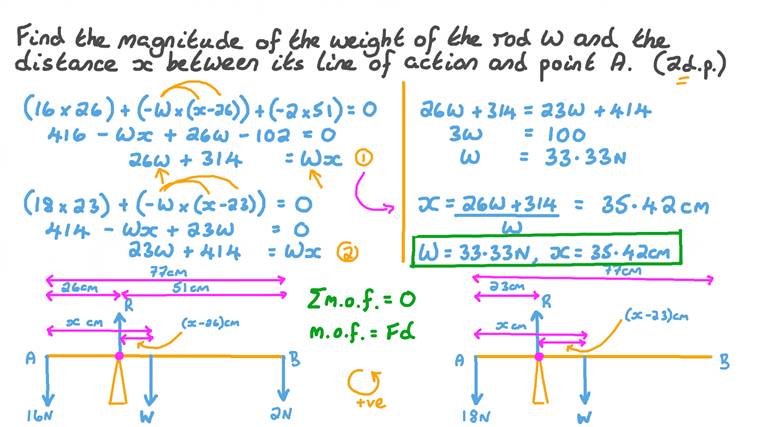 Find the magnitude of the weight of the rod W and the
distance x between its line of action and point A. (2d.p.)
(16 × 26) + (-W × (x-26)) + (-2 × 51) = 0
416 - Wx + 26W - 102 = 0
26W + 314 = Wx ①
(18 × 23) + (-W × (x-23)) = 0
414 - Wx + 23W = 0
23W + 414 = Wx ②
26W + 314 = 23W + 414
3W = 100
W = 33.33N
x = 26W + 314 / W = 35.42 cm
W = 33.33N, x = 35.42cm
77cm
26cm
51cm
R
x cm
(x-26)cm
A
B
16N
W
2N
Σm.o.f. = 0
m.o.f. = Fd
+ve
77cm
23cm
R
x cm
(x-23)cm
A
B
18N
W